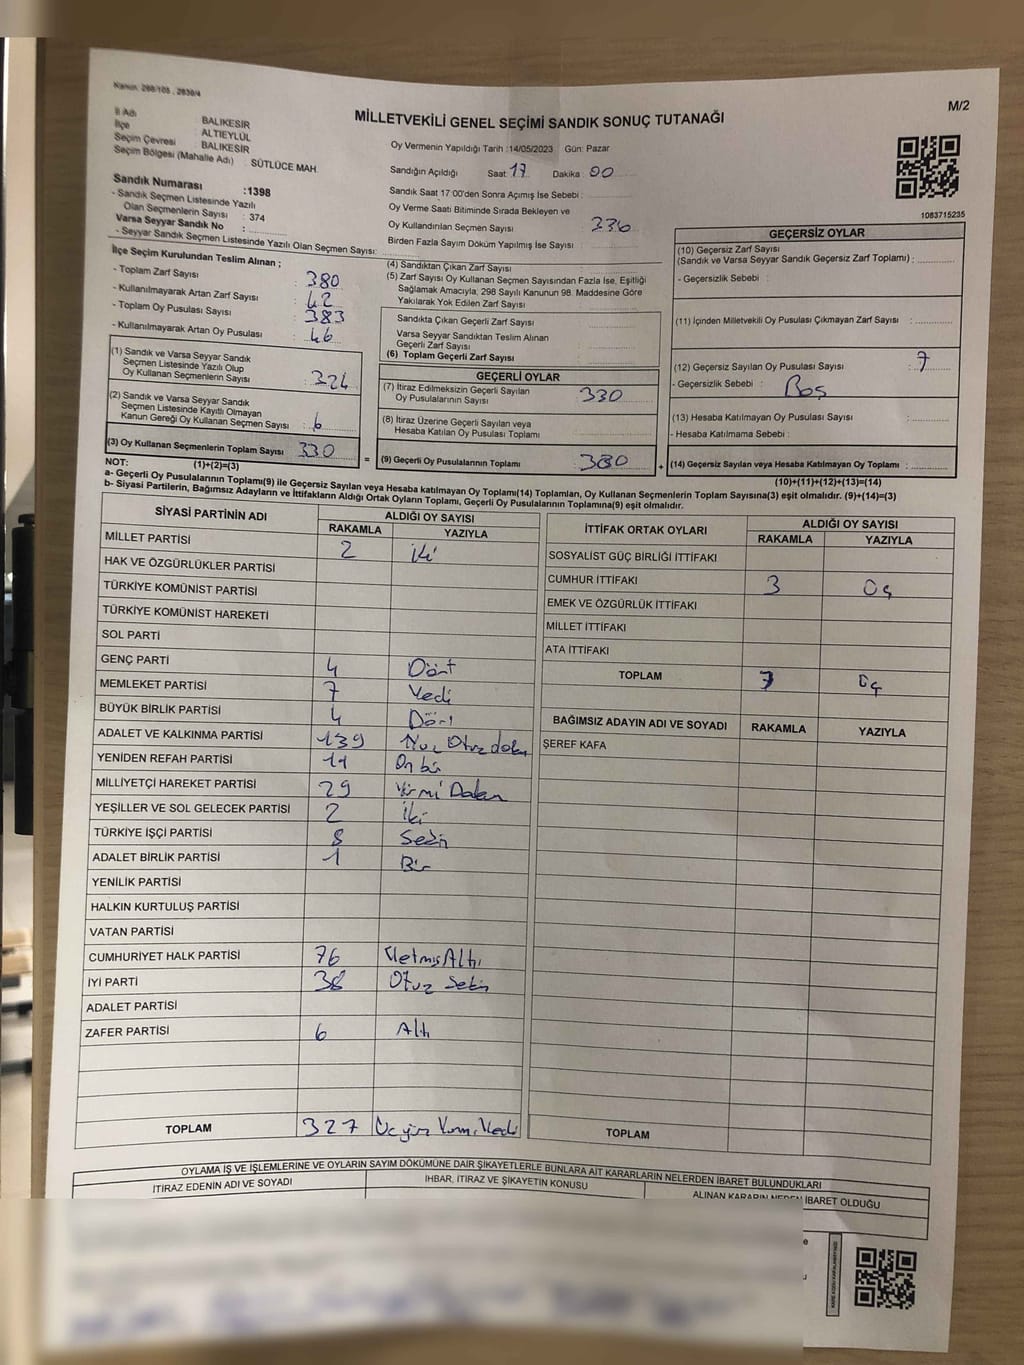 Kanun. 298/105 , 2839/4
M/2
MİLLETVEKİLİ GENEL SEÇİMİ SANDIK SONUÇ TUTANAĞI
İl Adı BALIKESİR
İlçe ALTIEYLÜL
Seçim Çevresi BALIKESİR
Seçim Bölgesi (Mahalle Adı) SÜTLÜCE MAH.
Sandık Numarası :1398
- Sandık Seçmen Listesinde Yazılı
Olan Seçmenlerin Sayısı : 374
Varsa Seyyar Sandık No :
- Seyyar Sandık Seçmen Listesinde Yazılı Olan Seçmen Sayısı:
Oy Vermenin Yapıldığı Tarih :14/05/2023 Gün: Pazar
Sandığın Açıldığı Saat 17 Dakika 00
Sandık Saat 17:00'den Sonra Açımış İse Sebebi :
Oy Verme Saati Bitiminde Sırada Bekleyen ve
Oy Kullandırılan Seçmen Sayısı 336
Birden Fazla Sayım Döküm Yapılmış İse Sayısı
1083715235
İlçe Seçim Kurulundan Teslim Alınan ;
- Toplam Zarf Sayısı : 380
- Kullanılmayarak Artan Zarf Sayısı : 42
- Toplam Oy Pusulası Sayısı : 383
- Kullanılmayarak Artan Oy Pusulası : 46
(1) Sandık ve Varsa Seyyar Sandık
Seçmen Listesinde Yazılı Olup
Oy Kullanan Seçmenlerin Sayısı : 324
(2) Sandık ve Varsa Seyyar Sandık
Seçmen Listesinde Kayıtlı Olmayan
Kanun Gereği Oy Kullanan Seçmen Sayısı : 6
(3) Oy Kullanan Seçmenlerin Toplam Sayısı 330
(1)+(2)=(3)
(4) Sandıktan Çıkan Zarf Sayısı :
(5) Zarf Sayısı Oy Kullanan Seçmen Sayısından Fazla İse, Eşitliği
Sağlamak Amacıyla, 298 Sayılı Kanunun 98. Maddesine Göre
Yakılarak Yok Edilen Zarf Sayısı
Sandıkta Çıkan Geçerli Zarf Sayısı :
Varsa Seyyar Sandıktan Teslim Alınan
Geçerli Zarf Sayısı :
(6) Toplam Geçerli Zarf Sayısı
GEÇERLİ OYLAR
(7) İtiraz Edilmeksizin Geçerli Sayılan
Oy Pusulalarının Sayısı : 330
(8) İtiraz Üzerine Geçerli Sayılan veya
Hesaba Katılan Oy Pusulası Toplamı
= (9) Geçerli Oy Pusulalarının Toplamı 380 +
GEÇERSİZ OYLAR
(10) Geçersiz Zarf Sayısı
(Sandık ve Varsa Seyyar Sandık Geçersiz Zarf Toplamı) :
- Geçersizlik Sebebi :
(11) İçinden Milletvekili Oy Pusulası Çıkmayan Zarf Sayısı :
(12) Geçersiz Sayılan Oy Pusulası Sayısı : 7
- Geçersizlik Sebebi : Boş
(13) Hesaba Katılmayan Oy Pusulası Sayısı
- Hesaba Katılmama Sebebi :
(14) Geçersiz Sayılan veya Hesaba Katılmayan Oy Toplamı :
(10)+(11)+(12)+(13)=(14)
NOT:
a- Geçerli Oy Pusulalarının Toplamı(9) ile Geçersiz Sayılan veya Hesaba katılmayan Oy Toplamı(14) Toplamları, Oy Kullanan Seçmenlerin Toplam Sayısına(3) eşit olmalıdır. (9)+(14)=(3)
b- Siyasi Partilerin, Bağımsız Adayların ve İttifakların Aldığı Ortak Oyların Toplamı, Geçerli Oy Pusulalarının Toplamına(9) eşit olmalıdır.
SİYASİ PARTİNİN ADI ALDIĞI OY SAYISI
RAKAMLA YAZIYLA
MİLLET PARTİSİ 2 iki
HAK VE ÖZGÜRLÜKLER PARTİSİ
TÜRKİYE KOMÜNİST PARTİSİ
TÜRKİYE KOMÜNİST HAREKETİ
SOL PARTİ
GENÇ PARTİ 4 Dört
MEMLEKET PARTİSİ 7 Yedi
BÜYÜK BİRLİK PARTİSİ 4 Dört
ADALET VE KALKINMA PARTİSİ 139 Yüz Otuz dokuz
YENİDEN REFAH PARTİSİ 11 On bir
MİLLİYETÇİ HAREKET PARTİSİ 29 Yirmi Dokuz
YEŞİLLER VE SOL GELECEK PARTİSİ 2 İki
TÜRKİYE İŞÇİ PARTİSİ 8 Sekiz
ADALET BİRLİK PARTİSİ 1 Bir
YENİLİK PARTİSİ
HALKIN KURTULUŞ PARTİSİ
VATAN PARTİSİ
CUMHURİYET HALK PARTİSİ 76 Yetmiş Altı
İYİ PARTİ 38 Otuz Sekiz
ADALET PARTİSİ
ZAFER PARTİSİ 6 Altı
TOPLAM 327 Üç yüz Yirmi Yedi
İTTİFAK ORTAK OYLARI ALDIĞI OY SAYISI
RAKAMLA YAZIYLA
SOSYALİST GÜÇ BİRLİĞİ İTTİFAKI
CUMHUR İTTİFAKI 3 Üç
EMEK VE ÖZGÜRLÜK İTTİFAKI
MİLLET İTTİFAKI
ATA İTTİFAKI
TOPLAM 3 Üç
BAĞIMSIZ ADAYIN ADI VE SOYADI RAKAMLA YAZIYLA
ŞEREF KAFA
TOPLAM
OYLAMA İŞ VE İŞLEMLERİNE VE OYLARIN SAYIM DÖKÜMÜNE DAİR ŞİKAYETLERLE BUNLARA AİT KARARLARIN NELERDEN İBARET BULUNDUKLARI
İTİRAZ EDENİN ADI VE SOYADI IHBAR, İTİRAZ VE ŞİKAYETİN KONUSU ALINAN KARARIN NEDEN İBARET OLDUĞU